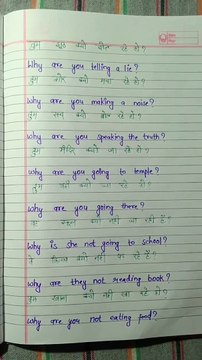 तुम झूठ क्यों बोल रहे हो?
Why are you telling a lie?
तुम शोर क्यों मचा रहे हो?
Why are you making a noise?
तुम सच क्यों बोल रहे हो?
Why are you speaking the truth?
तुम मंदिर क्यों जा रहे हो?
Why are you going to temple?
तुम वहाँ क्यों जा रहे हो?
Why are you going there?
वह स्कूल क्यों नहीं जा रही है?
Why is she not going to school?
वे किताब क्यों नहीं पढ़ रहे हैं?
Why are they not reading book?
तुम खाना क्यों नहीं खा रहे हो?
Why are you not eating food?